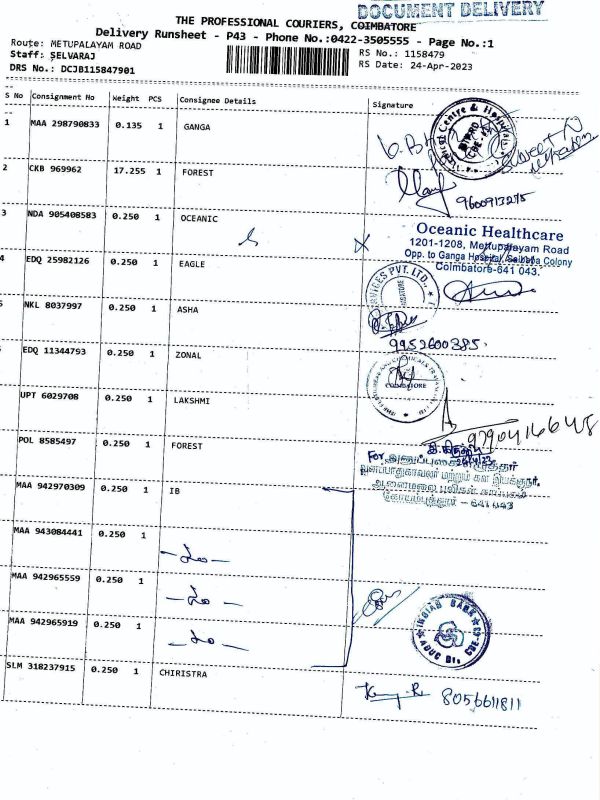 DOCUMENT DELIVERY
THE PROFESSIONAL COURIERS, COIMBATORE
Delivery Runsheet - P43 - Phone No.:0422-3505555 - Page No.:1
Route: METUPALAYAM ROAD
RS No.: 1158479
Staff: SELVARAJ
RS Date: 24-Apr-2023
DRS No.: DCJB115847901
S No Consignment No Weight PCS Consignee Details Signature
1 MAA 298790833 0.135 1 GANGA
2 CKB 969962 17.255 1 FOREST
9600913215
3 NDA 905408583 0.250 1 OCEANIC
Oceanic Healthcare
1201-1208, Mettupalayam Road
Opp. to Ganga Hospital, Saibaba Colony
Coimbatore-641 043.
4 EDQ 25982126 0.250 1 EAGLE
SERVICES PVT. LTD.,
NKL 8037997 0.250 1 ASHA
9952600385.
EDQ 11344793 0.250 1 ZONAL
COIMBATORE
UPT 6029708 0.250 1 LAKSHMI
9790416648
POL 8585497 0.250 1 FOREST
For
கோயம்புத்தூர் - 641 043
MAA 942970309 0.250 1 IB
MAA 943084441 0.250 1
MAA 942965559 0.250 1
INDIAN BANK
MAA 942965919 0.250 1
SLM 318237915 0.250 1 CHIRISTRA
8056611811